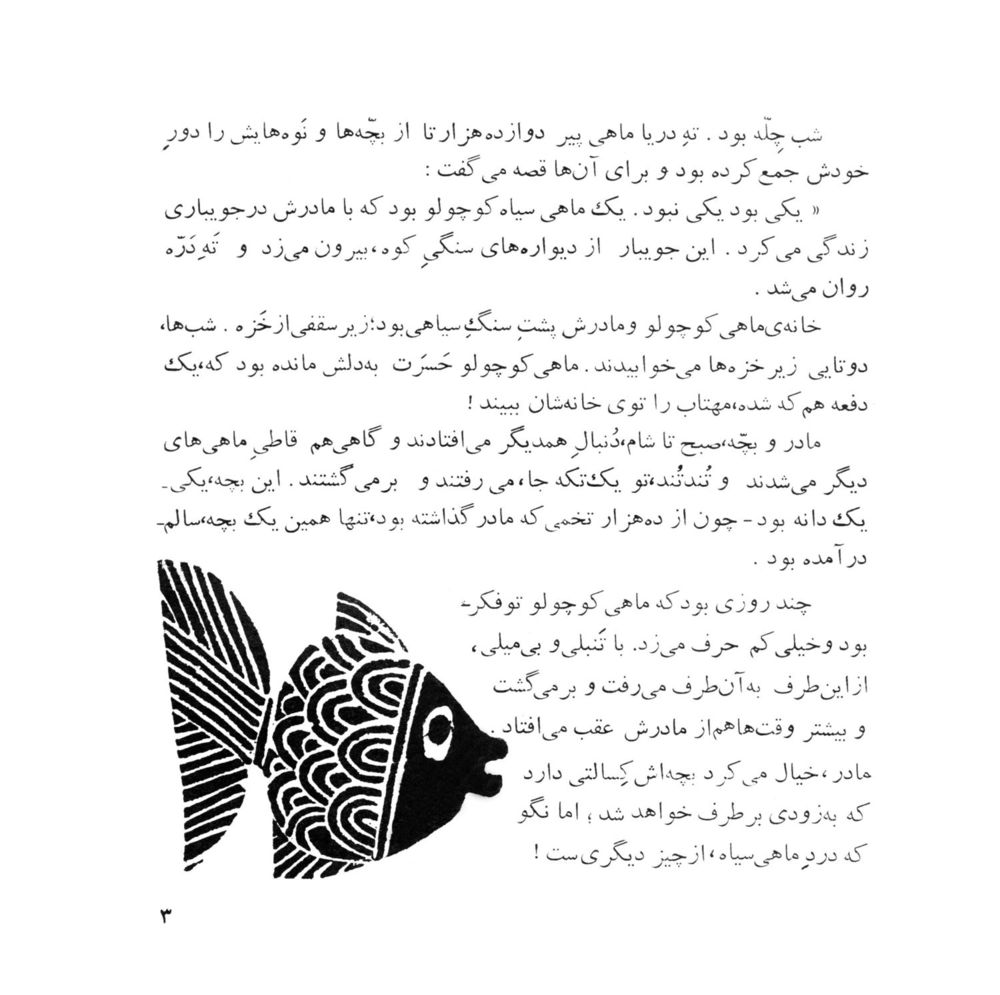 شب چِلّه بود . تهِ دریا ماهی پیر دوازده‌هزارتا از بچّه‌ها و نَوه‌هایش را دورِ
خودش جمع کرده بود و برای آن‌ها قصه می‌گفت :
« یکی بود یکی نبود . یک ماهی سیاه کوچولو بود که با مادرش درجویباری
زندگی می‌کرد . این جویبار از دیواره‌های سنگیِ کوه، بیرون می‌زد و تَهِ دَرّه
روان می‌شد .
خانه‌ی ماهی کوچولو و مادرش پشتِ سنگِ سیاهی بود؛ زیر سقفی از خَزه . شب‌ها،
دوتایی زیر خزه‌ها می‌خوابیدند . ماهی کوچولو حَسرَت به‌دلش مانده بود که، یک
دفعه هم که شده، مهتاب را توی خانه‌شان ببیند !
مادر و بچّه، صبح تا شام، دُنبالِ همدیگر می‌افتادند و گاهی هم قاطیِ ماهی‌های
دیگر می‌شدند و تُندتُند، تو یک تکه جا، می‌رفتند و برمی‌گشتند . این بچه، یکی-
یک دانه بود - چون از ده‌هزار تخمی که مادر گذاشته بود، تنها همین یک بچه، سالم-
درآمده بود .
چند روزی بود که ماهی کوچولو توفکر-
بود وخیلی کم حرف می‌زد. با تَنبلی و بی‌میلی ،
از این طرف به آن طرف می‌رفت و برمی‌گشت
و بیشتر وقت‌ها هم از مادرش عقب می‌افتاد .
مادر ، خیال می‌کرد بچه‌اش کِسالتی دارد
که به‌زودی برطرف خواهد شد ؛ اما نگو
که دردِ ماهی سیاه ، از چیز دیگری‌ست !
۳